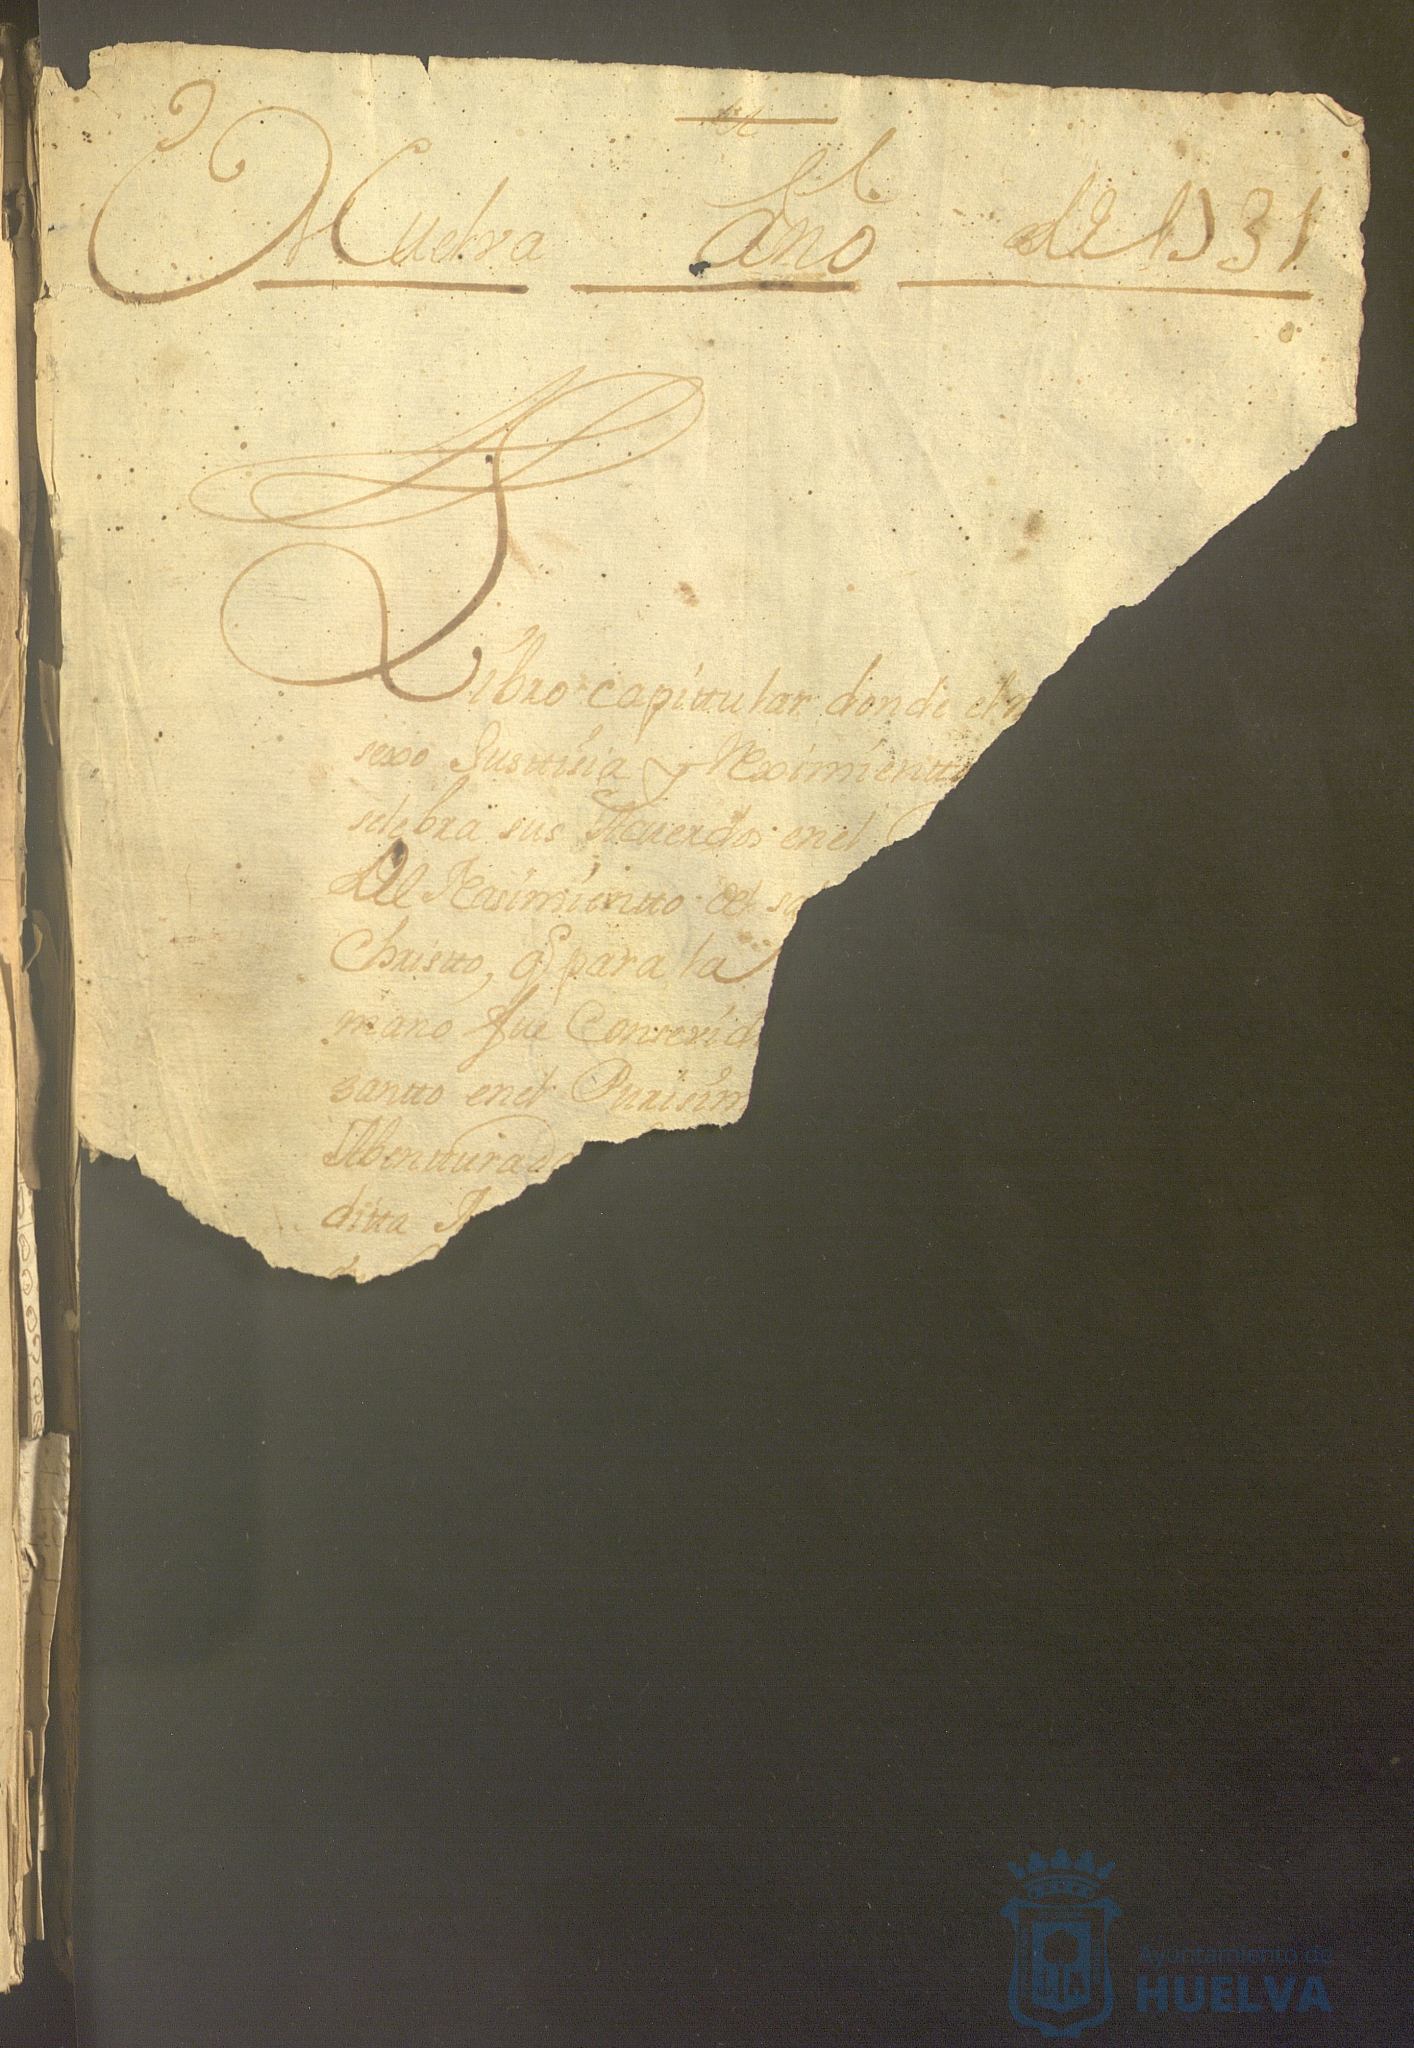 Huelva Año de 1731
Libro capittular donde el
sexo Justtisia y Reximientto
selebra sus Acuerdos en el
Del Nasimientto del sa
Christto, q para la
mano fue Conserid
santto en el Purisim
Abentturado
ditta
Ayuntamiento de
HUELVA